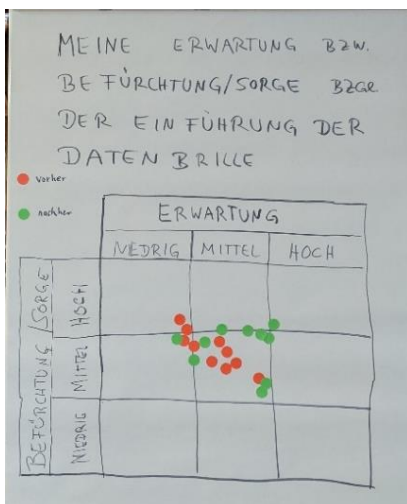 MEINE ERWARTUNG BZW.
BEFÜRCHTUNG/SORGE BZGL.
DER EINFÜHRUNG DER
DATEN BRILLE
vorher
nachher
ERWARTUNG
NIEDRIG MITTEL HOCH
BEFÜRCHTUNG/SORGE
HOCH
MITTEL
NIEDRIG